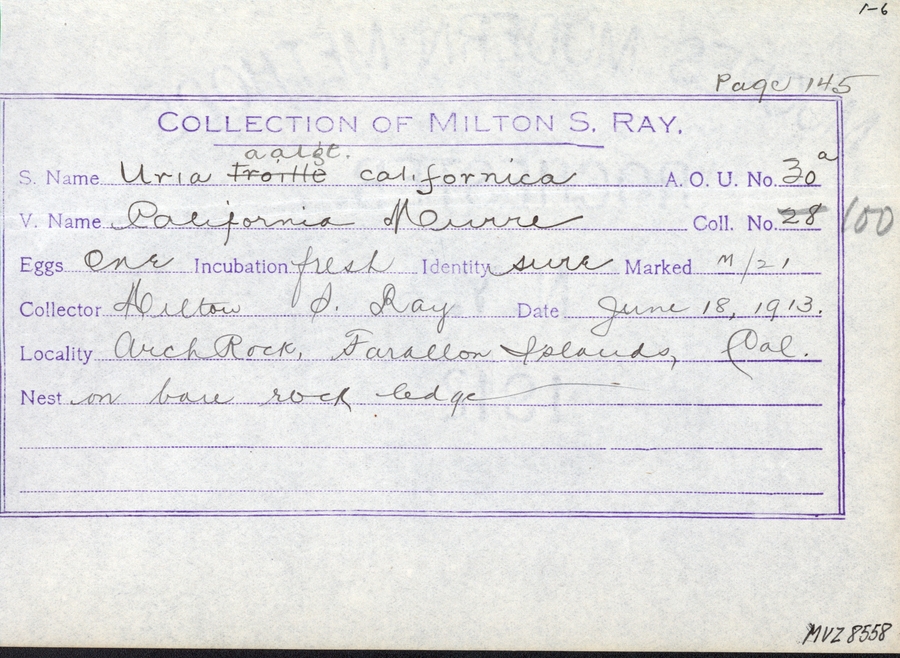 1-6
Page 145
COLLECTION OF MILTON S. RAY.
aalge.
S. Name Uria troille californica A. O. U. No. 30a
V. Name California Murre Coll. No. 28 100
Eggs One Incubation fresh Identity sure Marked m/21
Collector Milton S. Ray Date June 18, 1913.
Locality Arch Rock, Farallon Islands, Cal.
Nest on bare rock ledge
MVZ 8558